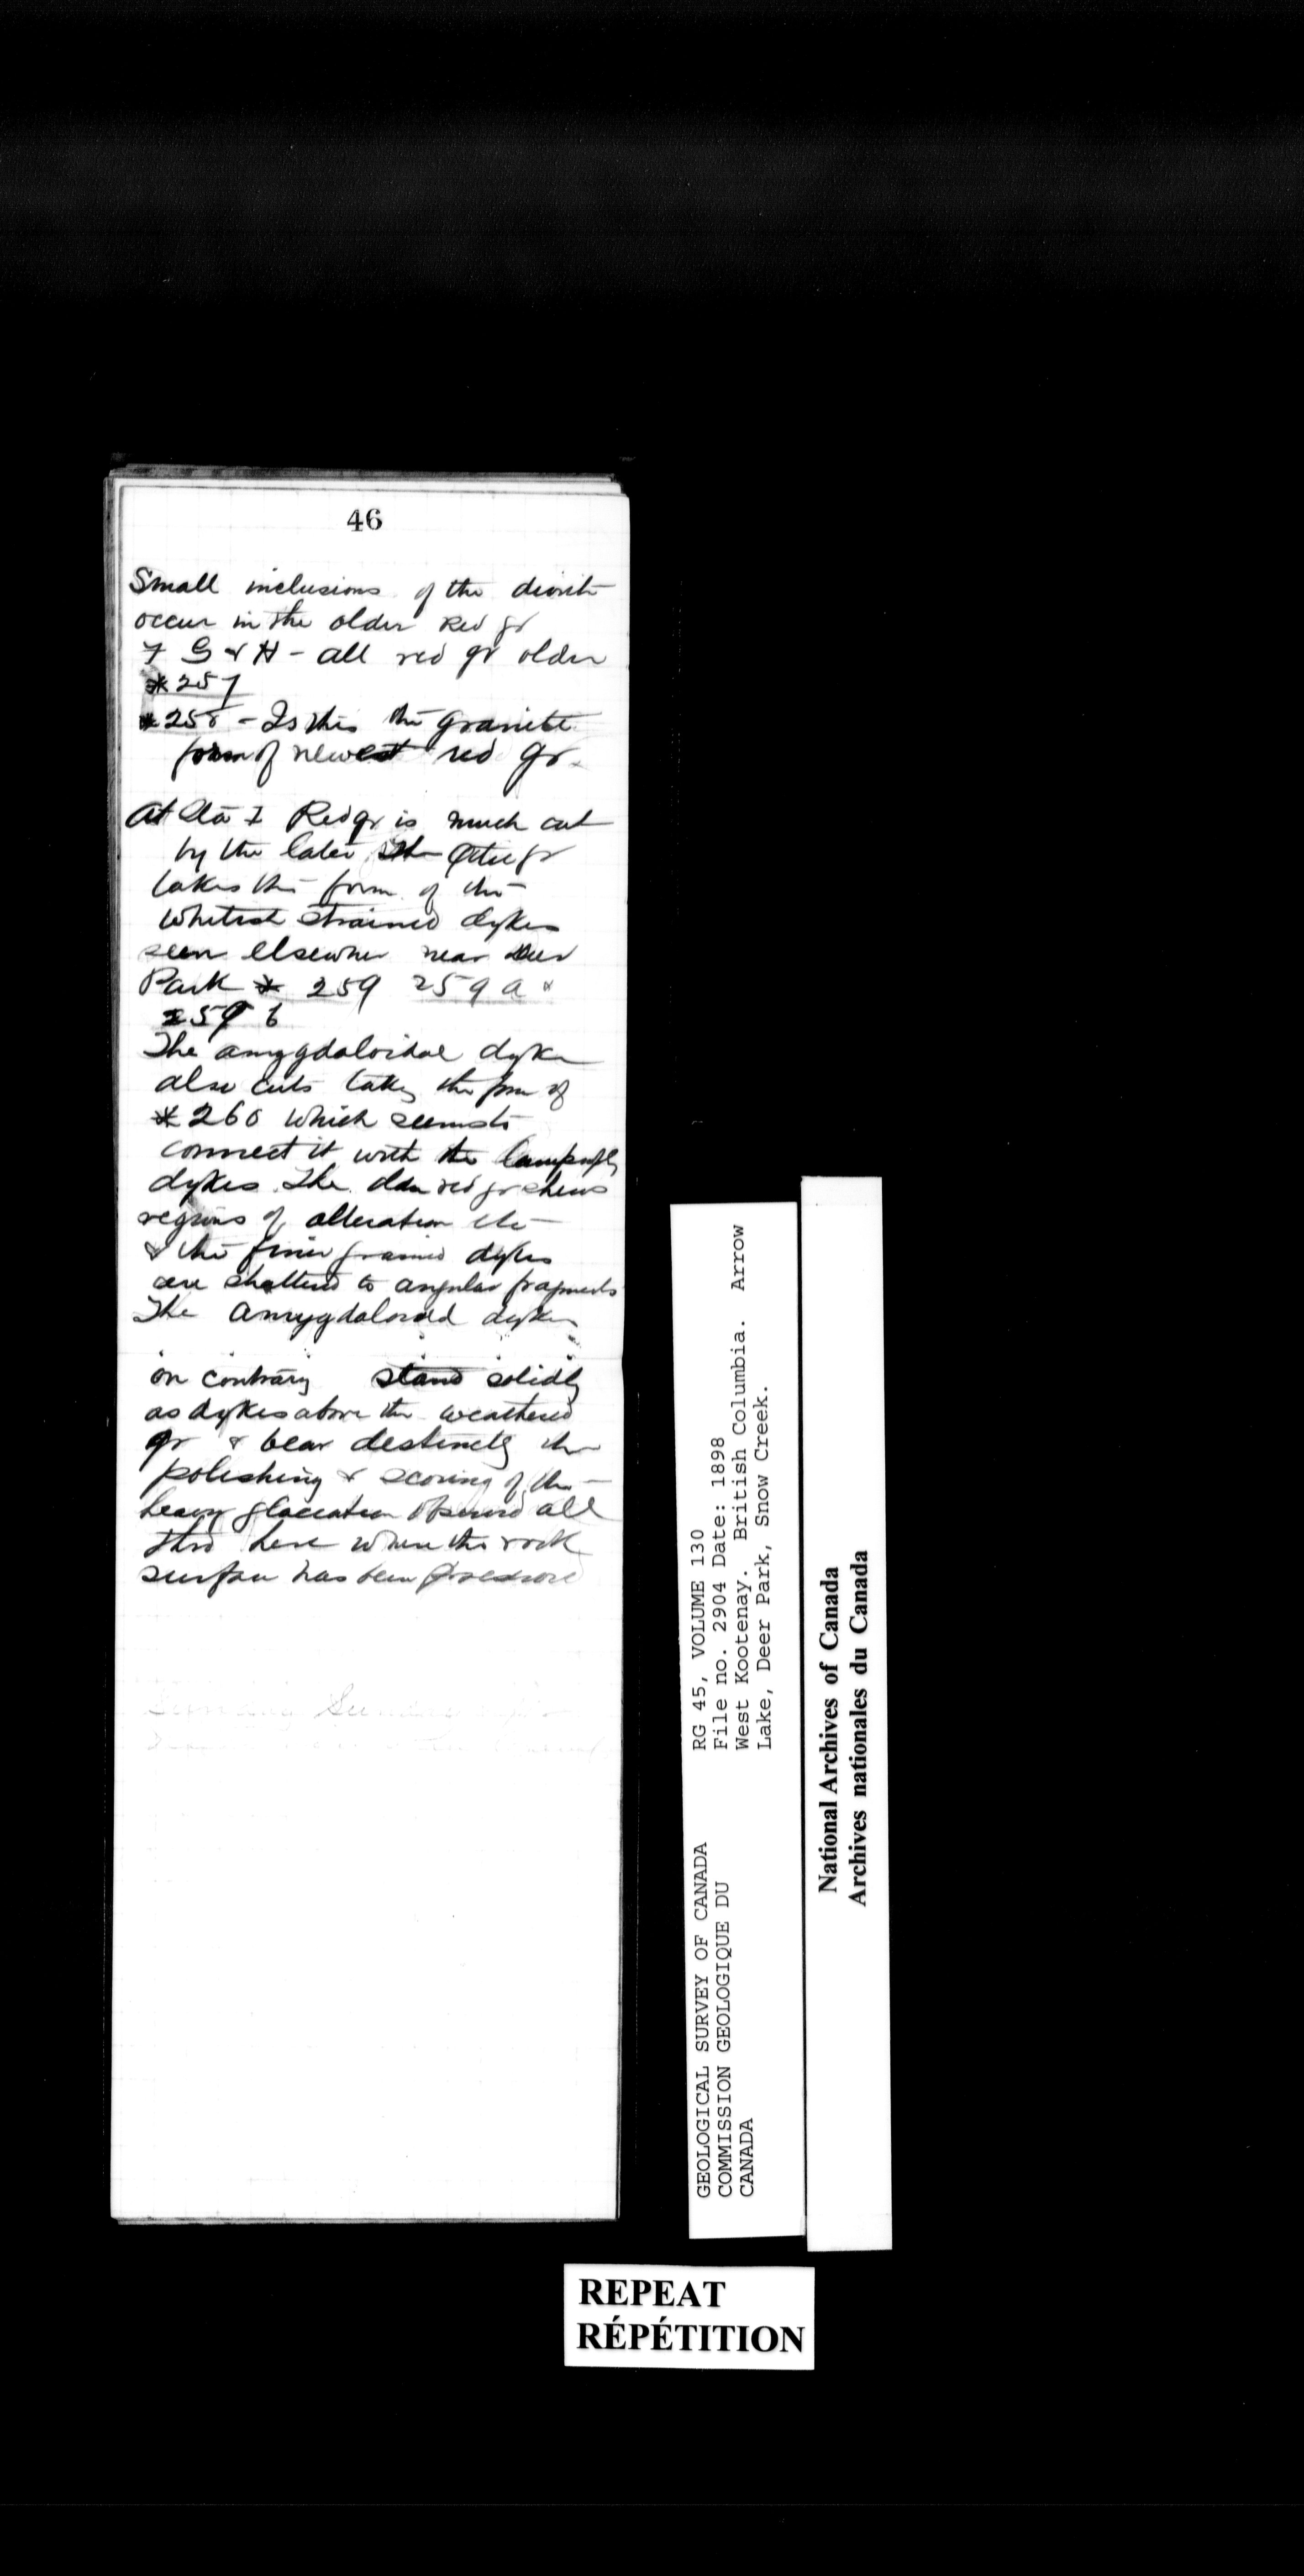 46
Small inclusions of the diorite
occur in the older Red gr
F G & H - all red gr older
* 257
* 258 - Is this the granite
form of newest red gr.
At Sta I Red gr is much cut
by the later The gr
takes the form of the
whitish strained dykes
seen elsewhere near Deer
Park * 259 259 a &
259 b
The amygdaloidal dyke
also cuts taking the form of
* 260 which seems to
connect it with the lamproph
dykes. The older red gr shews
regions of alteration etc
& the finer grained dykes
are shattered to angular fragments
The amygdaloidal dykes
on contrary stand solidly
as dykes above the weathered
gr & bear distinctly the
polishing & scoring of the
heavy glaciation observed all
thro here where the rock
surface has been
RG 45, VOLUME 130
File no. 2904 Date: 1898
West Kootenay. British Columbia. Arrow
Lake, Deer Park, Snow Creek.
GEOLOGICAL SURVEY OF CANADA
COMMISSION GEOLOGIQUE DU
CANADA
National Archives of Canada
Archives nationales du Canada
REPEAT
RÉPÉTITION